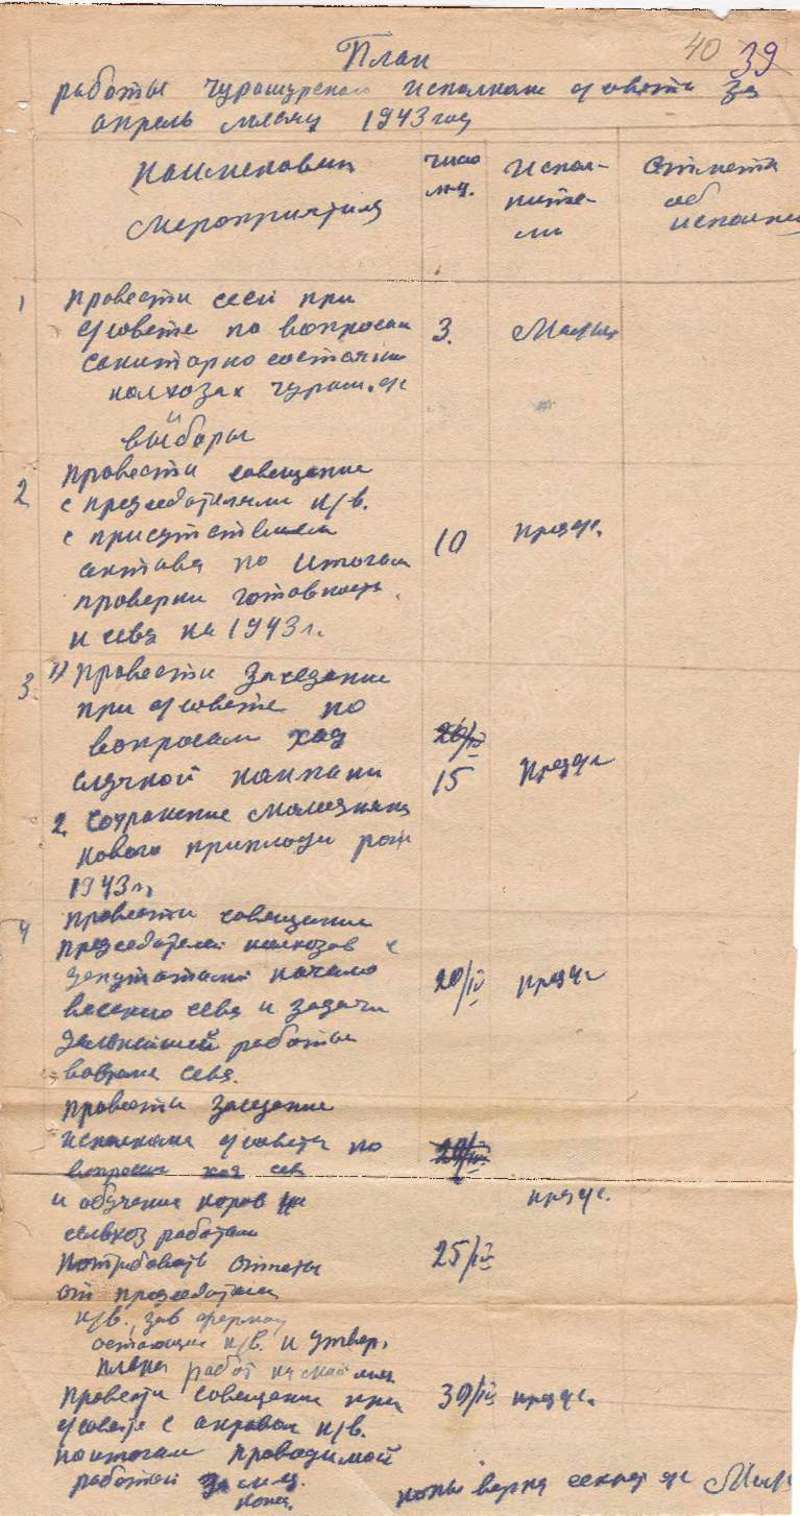 40 39
План
работы Чурашурского исполкома с/совета за
апрель месяц 1943 год
Наименован
Мероприятия
число
м-ц.
Испол-
ните-
ли
Отметка
об
исполнен
1
Провести сесси при
с/совете по вопросам
санитарно состояни
колхозах Чураш. с/с
и
выборы
3.
2
Провести совещание
с председателями к/в.
с присутствием
актава по итогам
проверки готовность
и сева на 1943 г.
10
Пред с/с.
3.
1) Провести заседание
при с/совете по
вопросам ход
случной кампани
2. Сохранение молодняка
нового приплода
1943 г.
15
Пред с/с
4
Провести совещание
председателей колхозов с
депутатами начало
весенно сева и задачи
дальнейшей работы
вовремя сева.
20/IV
пред с/с
Провести заседание
исполкома с/совета по
вопросам ход сева
и обучения коров на
сельхоз работам
пред с/с.
25/IV
Потребовать отчеты
от председателей
к/в., зав фермой
к/в. и утвер.
плана работ на май м-ц
Провести совещание при
с/совете с к/в.
по итогам проводимой
работой за м-ц.
30/IV
пред с/с.
копия верна секрет с/с